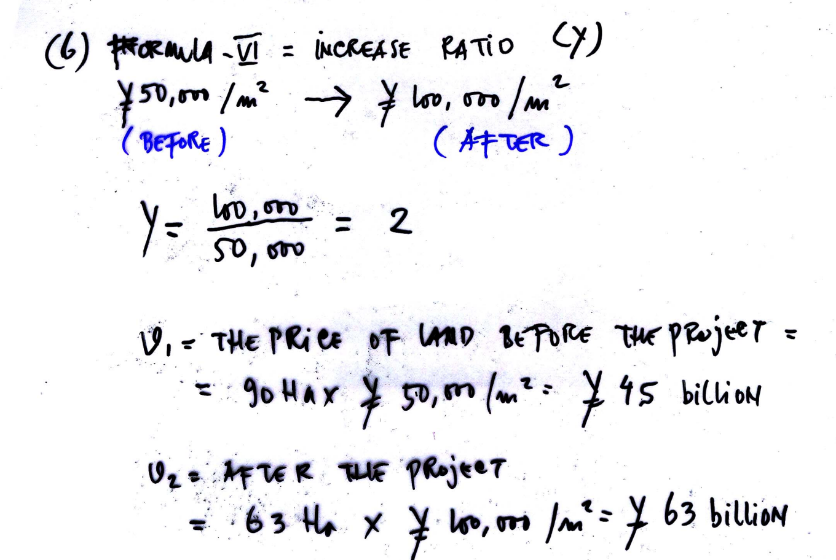 (6) FORMULA-VI = INCREASE RATIO (Y)
¥50,000/m² → ¥100,000/m²
(BEFORE) (AFTER)
Y = 100,000 / 50,000 = 2
V₁ = THE PRICE OF LAND BEFORE THE PROJECT =
= 90 Ha x ¥ 50,000/m² = ¥ 45 billiON
V₂ = AFTER THE PROJECT
= 63 Ha x ¥ 100,000/m² = ¥ 63 billiON